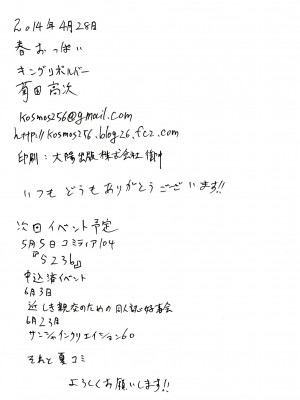 2014年4月28日
春おっぱい
キングリボルバー
菊田高次
kosmos256@gmail.com
http://kosmos256.blog26.fc2.com
印刷:大陽出版株式会社御中
いつもどうもありがとうございます!!
次回イベント予定
5月5日コミティア104
『5236』
申込済イベント
6月3日
近しき親交のための同人誌好事会
6月23日
サンシャインクリエイション60
それと夏コミ
よろしくお願いします!!